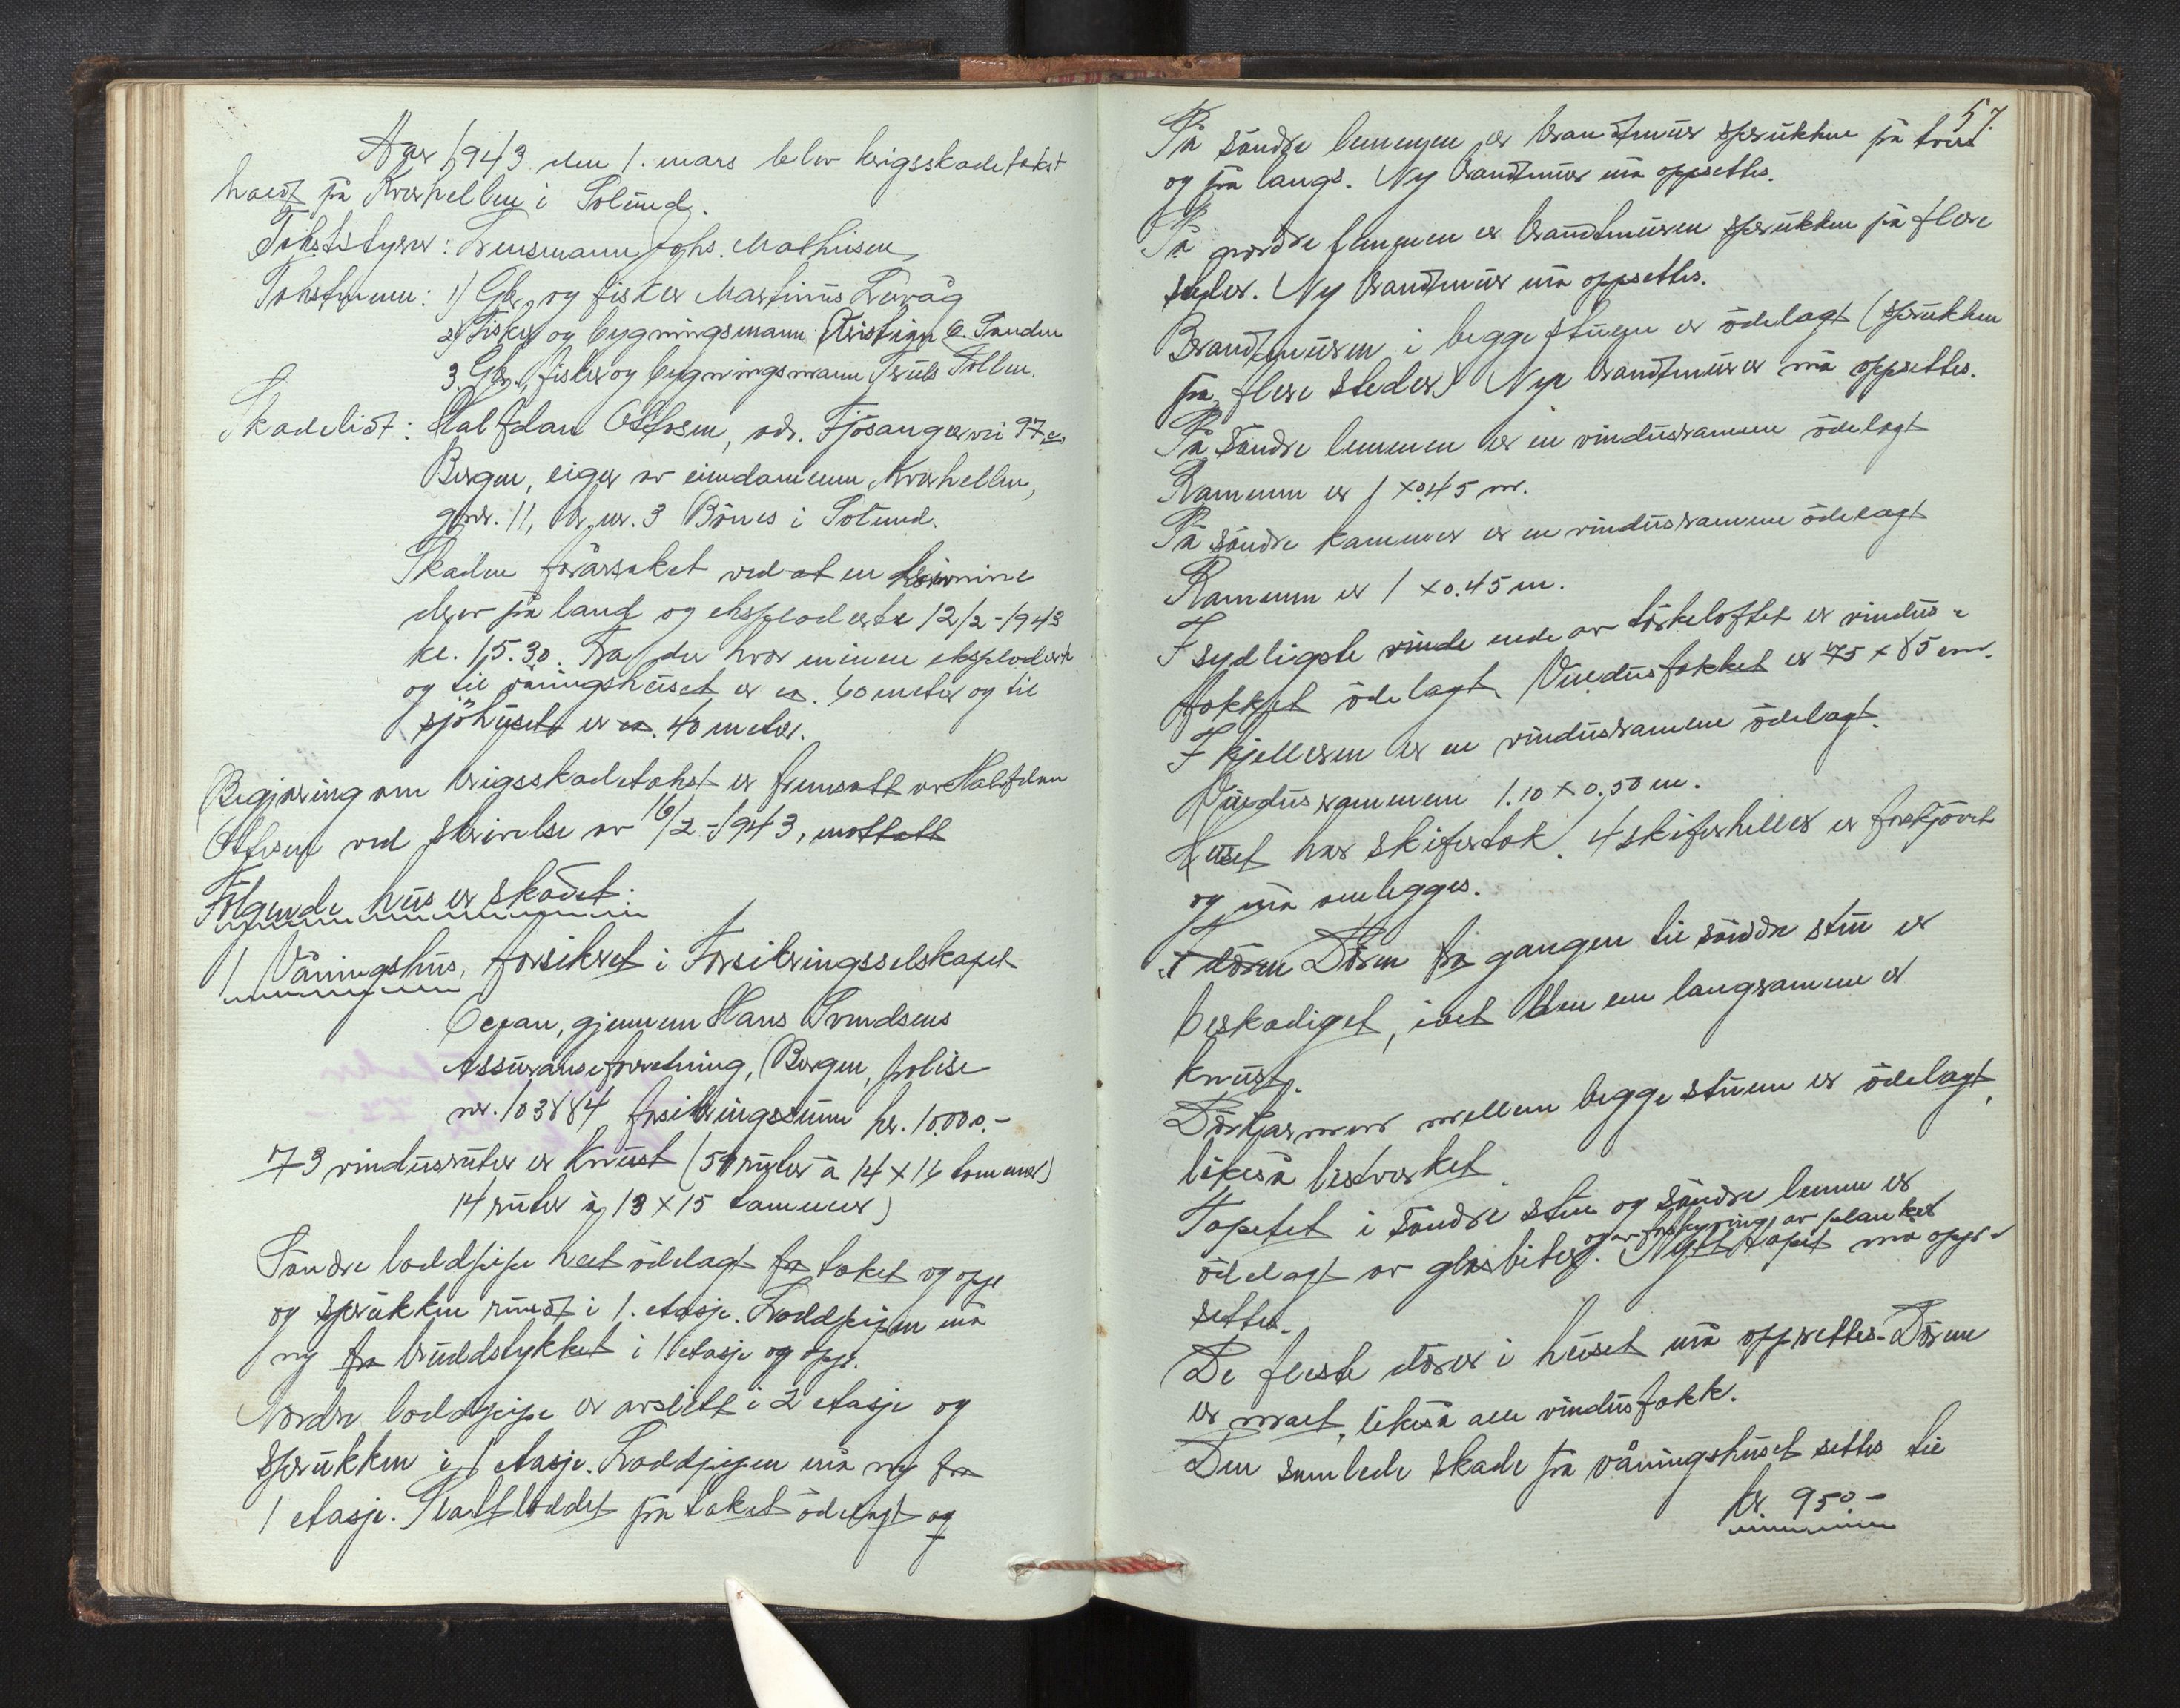 Aar 1943 den 1. mars blev krigsskadetakst
haldt på Kverhellen i Solund.
Takststyrer: Lensmann Johs. Mathisen,
Takstmenn: 1) Gbr. og fisker Martinus Leråg
2) Fisker og bygningsmann Kristian E. Tanden
3. Gbr., fisker og bygningsmann Truls Follen.
Skadelidt: Halfdan Ottesen, adr. Fjösangervei 97
Bergen, eiger av eiendommen Kverhellen,
gnr. 11, br.nr. 3 Börnes i Solund.
Skaden forårsaket ved at en hornmine
drev på land og eksploderte 12/2-1943
kl. 15.30. Fra der hvor minen eksploderte
og til våningshuset er ca. 60 meter og til
sjöhuset er ca. 40 meter.
Begjæring om krigsskadetakst er fremsatt av Halfdan
Ottesen ved skrivelse av 16/2-1943, mottatt
Fölgende hus er skadet:
1 Våningshus, forsikret i Forsikringsselskapet
Ocean, gjennem Hans Svendsens
Assuranseforretning, Bergen, polise
nr. 103884 forsikringssum kr. 10.000.-
73 vindusruter er knust (59 ruter à 14 x 16 tommer)
14 ruter à 13 x 15 tommer)
Söndre loddpipe helt ödelagt fra taket og opp
og sprukken rundt i 1. etasje. Loddpipen må
ny fra buldstykket i 1 etasje og opp.
Nordre loddpipe er avslitt i 2 etasje og
sprukken i 1 etasje. Loddpipen må ny fra
1 etasje. Platt loddet på taket ödelagt og
57.
På söndre lemmen er brandtmur sprukken på tvers
og på langs. Ny brandtmur må oppsettes.
På nordre lemmen er brandtmuren sprukken på flere
steder. Ny brandtmur må oppsettes.
Brandtmuren i begge stuger er ödelagt (sprukken
på flere steder) Nye brandtmurer må oppsettes.
På söndre lemmen er en vindusramme ödelagt
Rammen er 1 x 0.45 m.
På söndre kammer er en vindusramme ödelagt
Rammen er 1 x 0.45 m.
I sydligste vinde ende av törkeloftet er vindus-
fokket ödelagt. Vindusfokket er 75 x 85 cm.
I kjelleren er en vindusramme ödelagt.
Vindusrammen 1.10 x 0,50 m.
Huset har skifertak. 4 skiferheller er forskjövet
og må omlegges.
I dören Dören fra gangen til söndre stue er
beskadiget, idet den ene langramme er
knust.
Dörkarmen mellem begge stuene er ödelagt,
likeså listverket.
Tapetet i söndre stue og söndre lemm er
ödelagt av glasbiter og av forskyvning av planket. Nytt tapet må opp-
settes.
De fleste dörer i huset må opprettes. Dörene
er malt, likeså alle vindusfokk.
Den samlede skade på våningshuset settes til
kr. 950.-